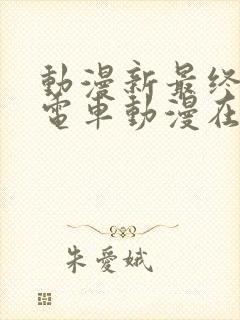 動漫新最终
電車動漫在
朱愛娥